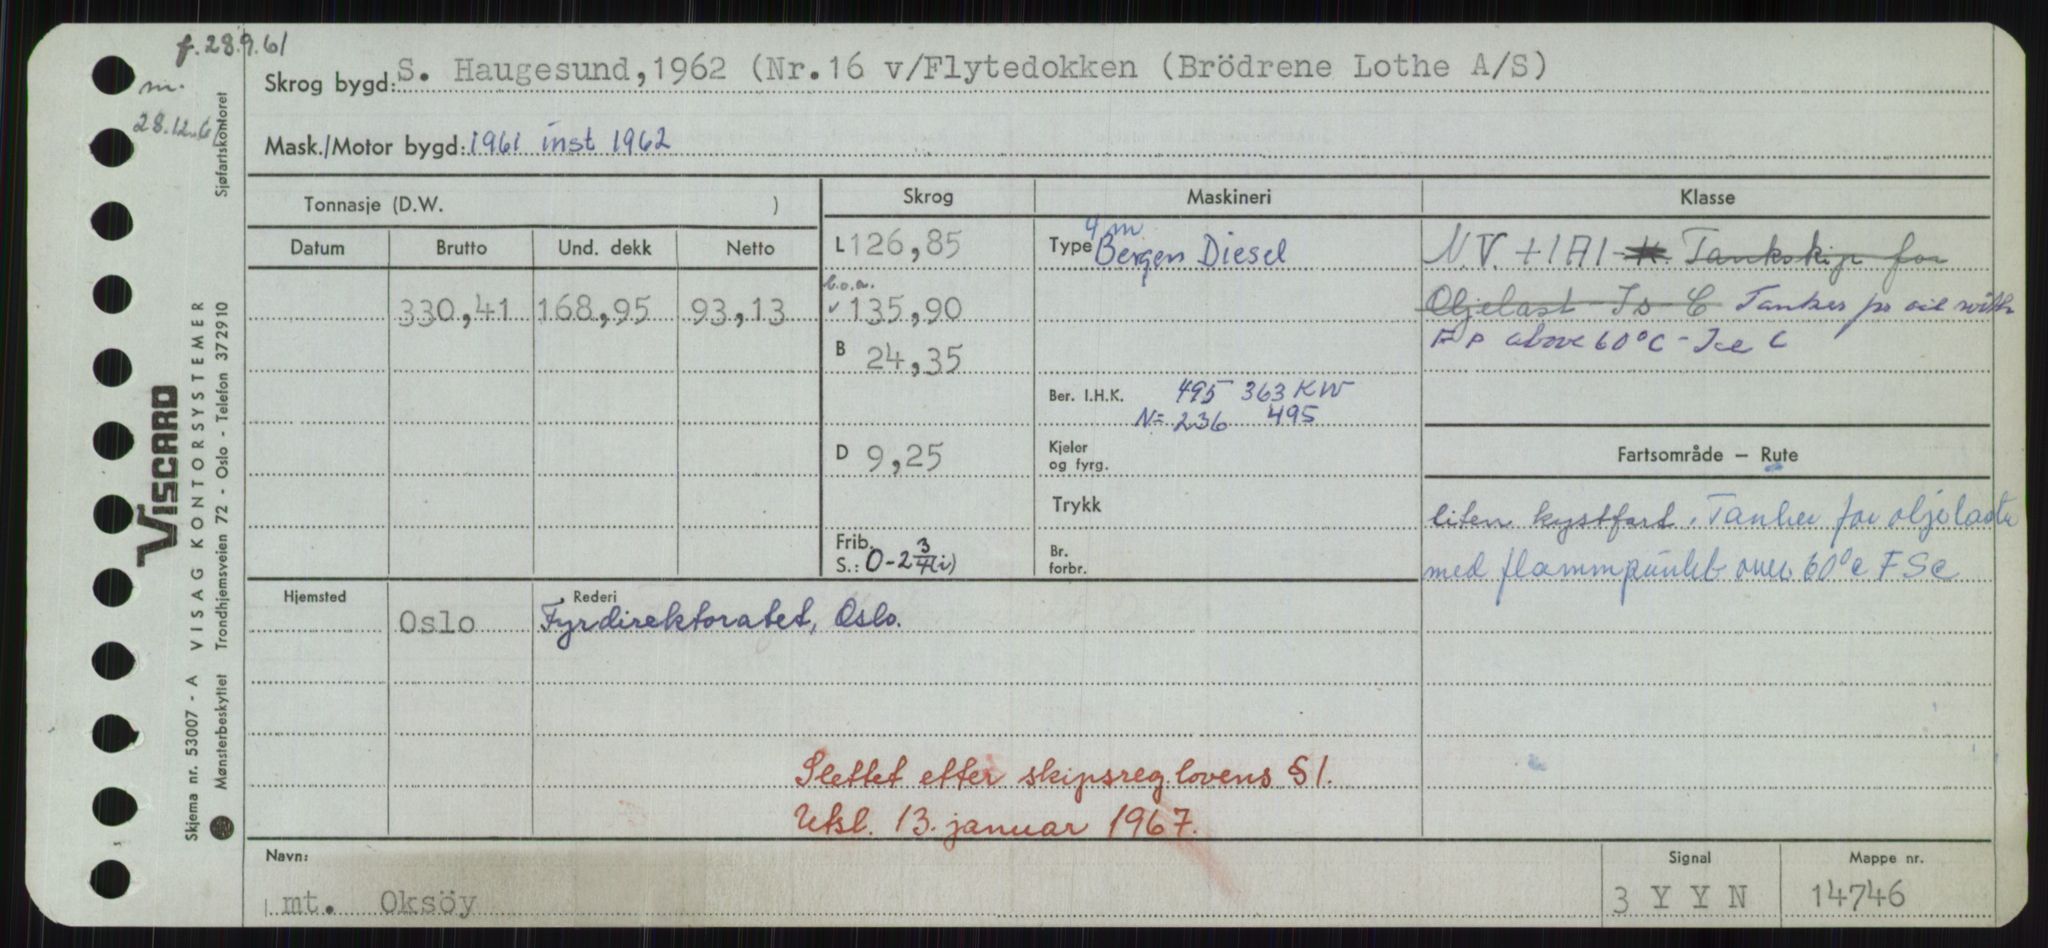 f. 28.9.61
m.
28.12.61
Skrog bygd: S. Haugesund, 1962 (Nr. 16 v/Flytedokken (Brödrene Lothe A/S)
Mask./Motor bygd: 1961 inst 1962
Sjøfartskontoret
Tonnasje (D.W. )
Skrog
Maskineri
Klasse
Datum Brutto Und. dekk Netto
330,41 168,95 93,13
L 126,85
b.o.a.
135,90
B 24,35
D 9,25
Frib.
S.: 0-2 3/4 (i)
4 m
Type Bergen Diesel
Ber. I.H.K. 495 363 KW
N= 236 495
Kjeler
og fyrg.
Trykk
Br.
forbr.
N.V. +1A1 - K. Tankskip for
Oljelast Is C Tanker for oil with
F P above 60°C - Ice C
Fartsområde — Rute
liten kystfart. Tanker for oljelaste
med flammpunkt over 60°C FSc
Hjemsted
Rederi
Oslo Fyrdirektoratet, Oslo.
Slettet etter skipsreg.lovens § 1.
Utsl. 13. januar 1967.
Navn:
mt. Oksöy
Signal
3 Y Y N
Mappe nr.
14746
VISCARD
VISAG KONTORSYSTEMER
Trondhjemsveien 72 - Oslo - Telefon 372910
Skjema nr. 53007 - A
Mønsterbeskyttet